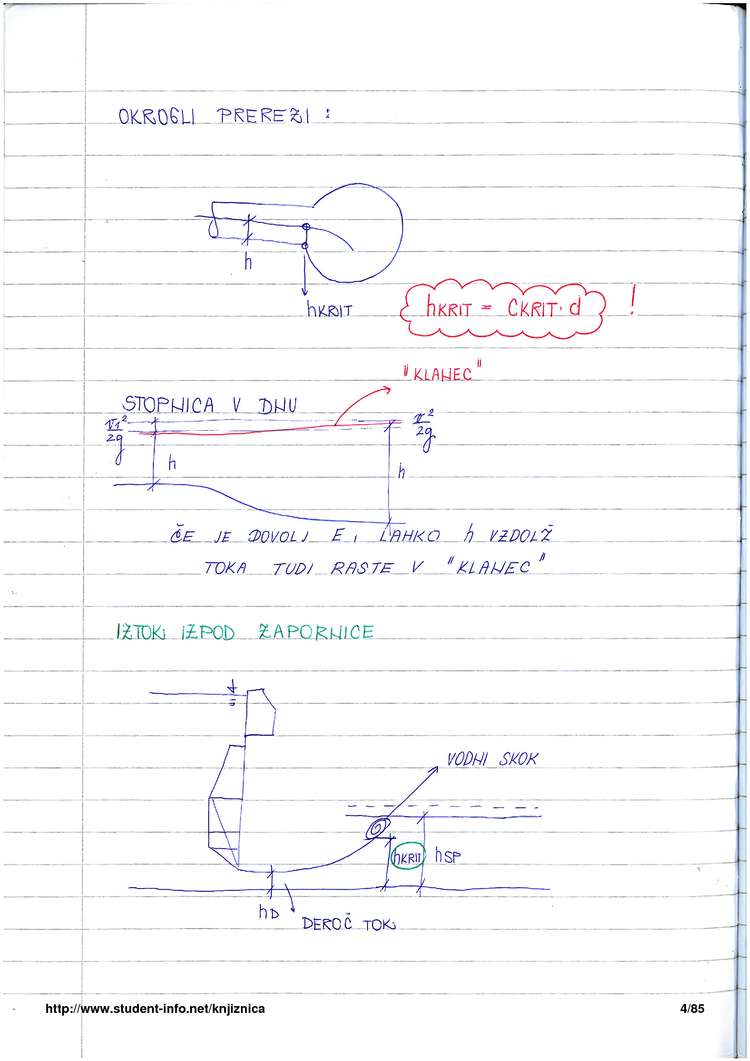 OKROGLI PREREZI :
h
hKRIT
hKRIT = CKRIT · d !
"KLANEC"
STOPNICA V DNU
V1²/2g
V²/2g
h
h
ČE JE DOVOLJ E, LAHKO h VZDOLŽ
TOKA TUDI RASTE V "KLANEC"
IZTOKI IZPOD ZAPORNICE
VODNI SKOK
hKRIT hSP
hD
DEROČ TOK
http://www.student-info.net/knjiznica 4/85